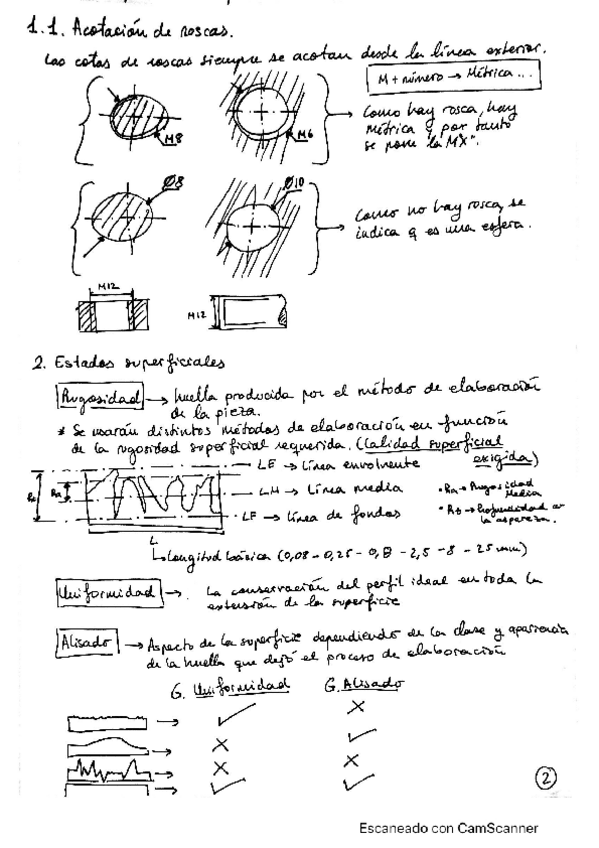 1.1. Acotación de roscas.
Las cotas de roscas siempre se acotan desde la línea exterior.
M + número → Métrica...
M8
M6
Como hay rosca, hay
métrica y por tanto
se pone la "MX".
Ø8
Ø10
Como no hay rosca, se
indica q es una esfera.
M12
M12
2. Estados superficiales
Rugosidad → huella producida por el método de elaboración
de la pieza.
* Se usarán distintos métodos de elaboración en función
de la rugosidad superficial requerida. (Calidad superficial
exigida)
LE → Línea envolvente
LM → Línea media
LF → Línea de fondos
• Ra → Rugosidad
Media
• Rt → Profundidad de
la aspereza.
Rt
Ra
L
Longitud básica (0,08 - 0,25 - 0,8 - 2,5 - 8 - 25 mm)
Uniformidad → La conservación del perfil ideal en toda la
extensión de la superficie
Alisado → Aspecto de la superficie dependiendo de la clase y apariencia
de la huella que dejó el proceso de elaboración
G. Uniformidad G. Alisado
→ ✓ ×
→ × ✓
→ × ×
→ ✓ ✓
2
Escaneado con CamScanner